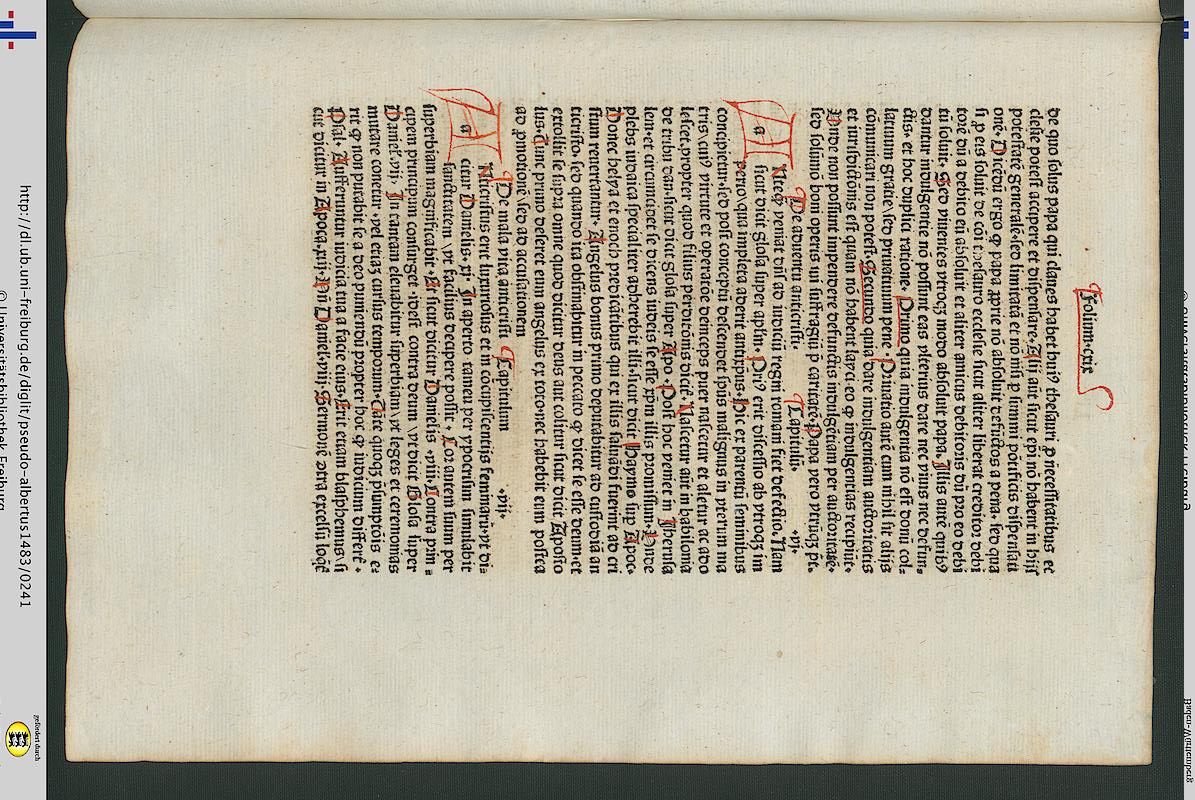 Folium·cxix
de quo solus papa qui claues habet huiꝰ thesauri ꝓ necessitatibus ec
clesie potest accipere et dispensare· Alij aūt sicut ep̄i nō habent in hijs
potestatē generalē·sed limitatā et nō nisi ꝓ sūmi pōtificis dispensati
onē· Dicēdū ergo ꝙ papa ꝓprie nō absoluit defūctos a pena· sed qua
si ꝓ eis soluit de cōi thesauro ecclesie sicut aliter liberat creditor debi
torē dū a debito eū absoluit et aliter amicus debitoris dū pro eo debi
tū soluit· Sed viuentes vtroqꝫ modo absoluit papa· Illis autē quibꝰ
dantur indulgentie nō possunt eas vlterius dare nec viuis nec defun-
ctis· et hoc duplici ratione· Primo quia indulgentia nō est donū col-
latum gratie sed priuatiuum pene· Priuatio autē cum nihil sit alijs
cōmunicari non potest· Secundo quia dare indulgentiam auctoritatis
et iurisdictiōnis est quam nō habent layci eo ꝙ indulgentias recipiūt·
Vnde non possunt impendere defunctis indulgētiam per auctoritatē·
sed solūmō boni operis vn̄ suffragiū ꝑ caritatē· Papa vero vtrūqꝫ pt̄·
De aduentu anticristi· Capitulū· ·vj·
a Nteqꝫ veniat dn̄s ad iudiciū regni romani fiet defectio· Nam
sicut dicit glosa super apl̄m· Priꝰ erit discessio ab vtroqꝫ im
perio\ qua impleta adueniet antixpus· Hic ex parentū seminibus
concipietur·sed post conceptū descendet sp̄us malignus in vterum ma
tris\ cuiꝰ virtute et operatōe deinceps puer nascetur et aletur ac ado
lescet·propter quod filius perditionis dicitur· Nascetur aūt in babilonia
de tribu dan·sicut dicit glosa super Apo· Post hoc veniet in Iherusa
lem·et circumcidet se dicens iudeis se esse xp̄m illis promissum· Vnde
plebs iudaica specialiter adherebit illi·sicut dicit Haymo sup Apoc·
Donec helya et enoch predicātibus qui ex illis saluandi fuerint ad cri
stum reuertantur· Angelus bonus primo deputabitur ad custodiā an
ticristi· sed quando ita obstinabitur in peccato ꝙ dicet se esse deum·et
extollit se supra omne quod dicitur deus aut colitur sicut dicit Aposto
lus· Tunc primo deseret eum angelus ex toto·nec habebit eum postea
ad ꝓmotionē·sed ad accusationem
De mala vita anticristi Capitulum ·vij·
a Nticristus erit luxuriosus et in cōcupiscentijs feminarū·vt di-
citur Danielis· xj· In aperto tamen per ypocrisim simulabit
sanctitatem \ vt facilius decipere possit · Cor autem suum per
superbiam magnificabit · Et sicut dicitur Danielis ·viij· Contra prin-
cipem principum consurget ·idest contra deum \ vt dicit Glosa super
Daniel·vij· In tantum eleuabitur superbiam\ vt leges et cerimonias
mutare conetur ·vel etiaꝫ cursus temporum· Hic quoqꝫ p̄sumptōis e-
rit ꝙ non putabit se a deo puniendū propter hoc ꝙ iudicium differt·
Psal· Auferuntur iudicia tua a facie eius· Erit etiam blasphemus\ si
cut dicitur in Apoca·xiij· Daniel·viij· Sermonē cōtra excelsū loqͥt
http://dl.ub.uni-freiburg.de/diglit/pseudo-albertus1483/0241
© Universitätsbibliothek Freiburg
gefördert durch